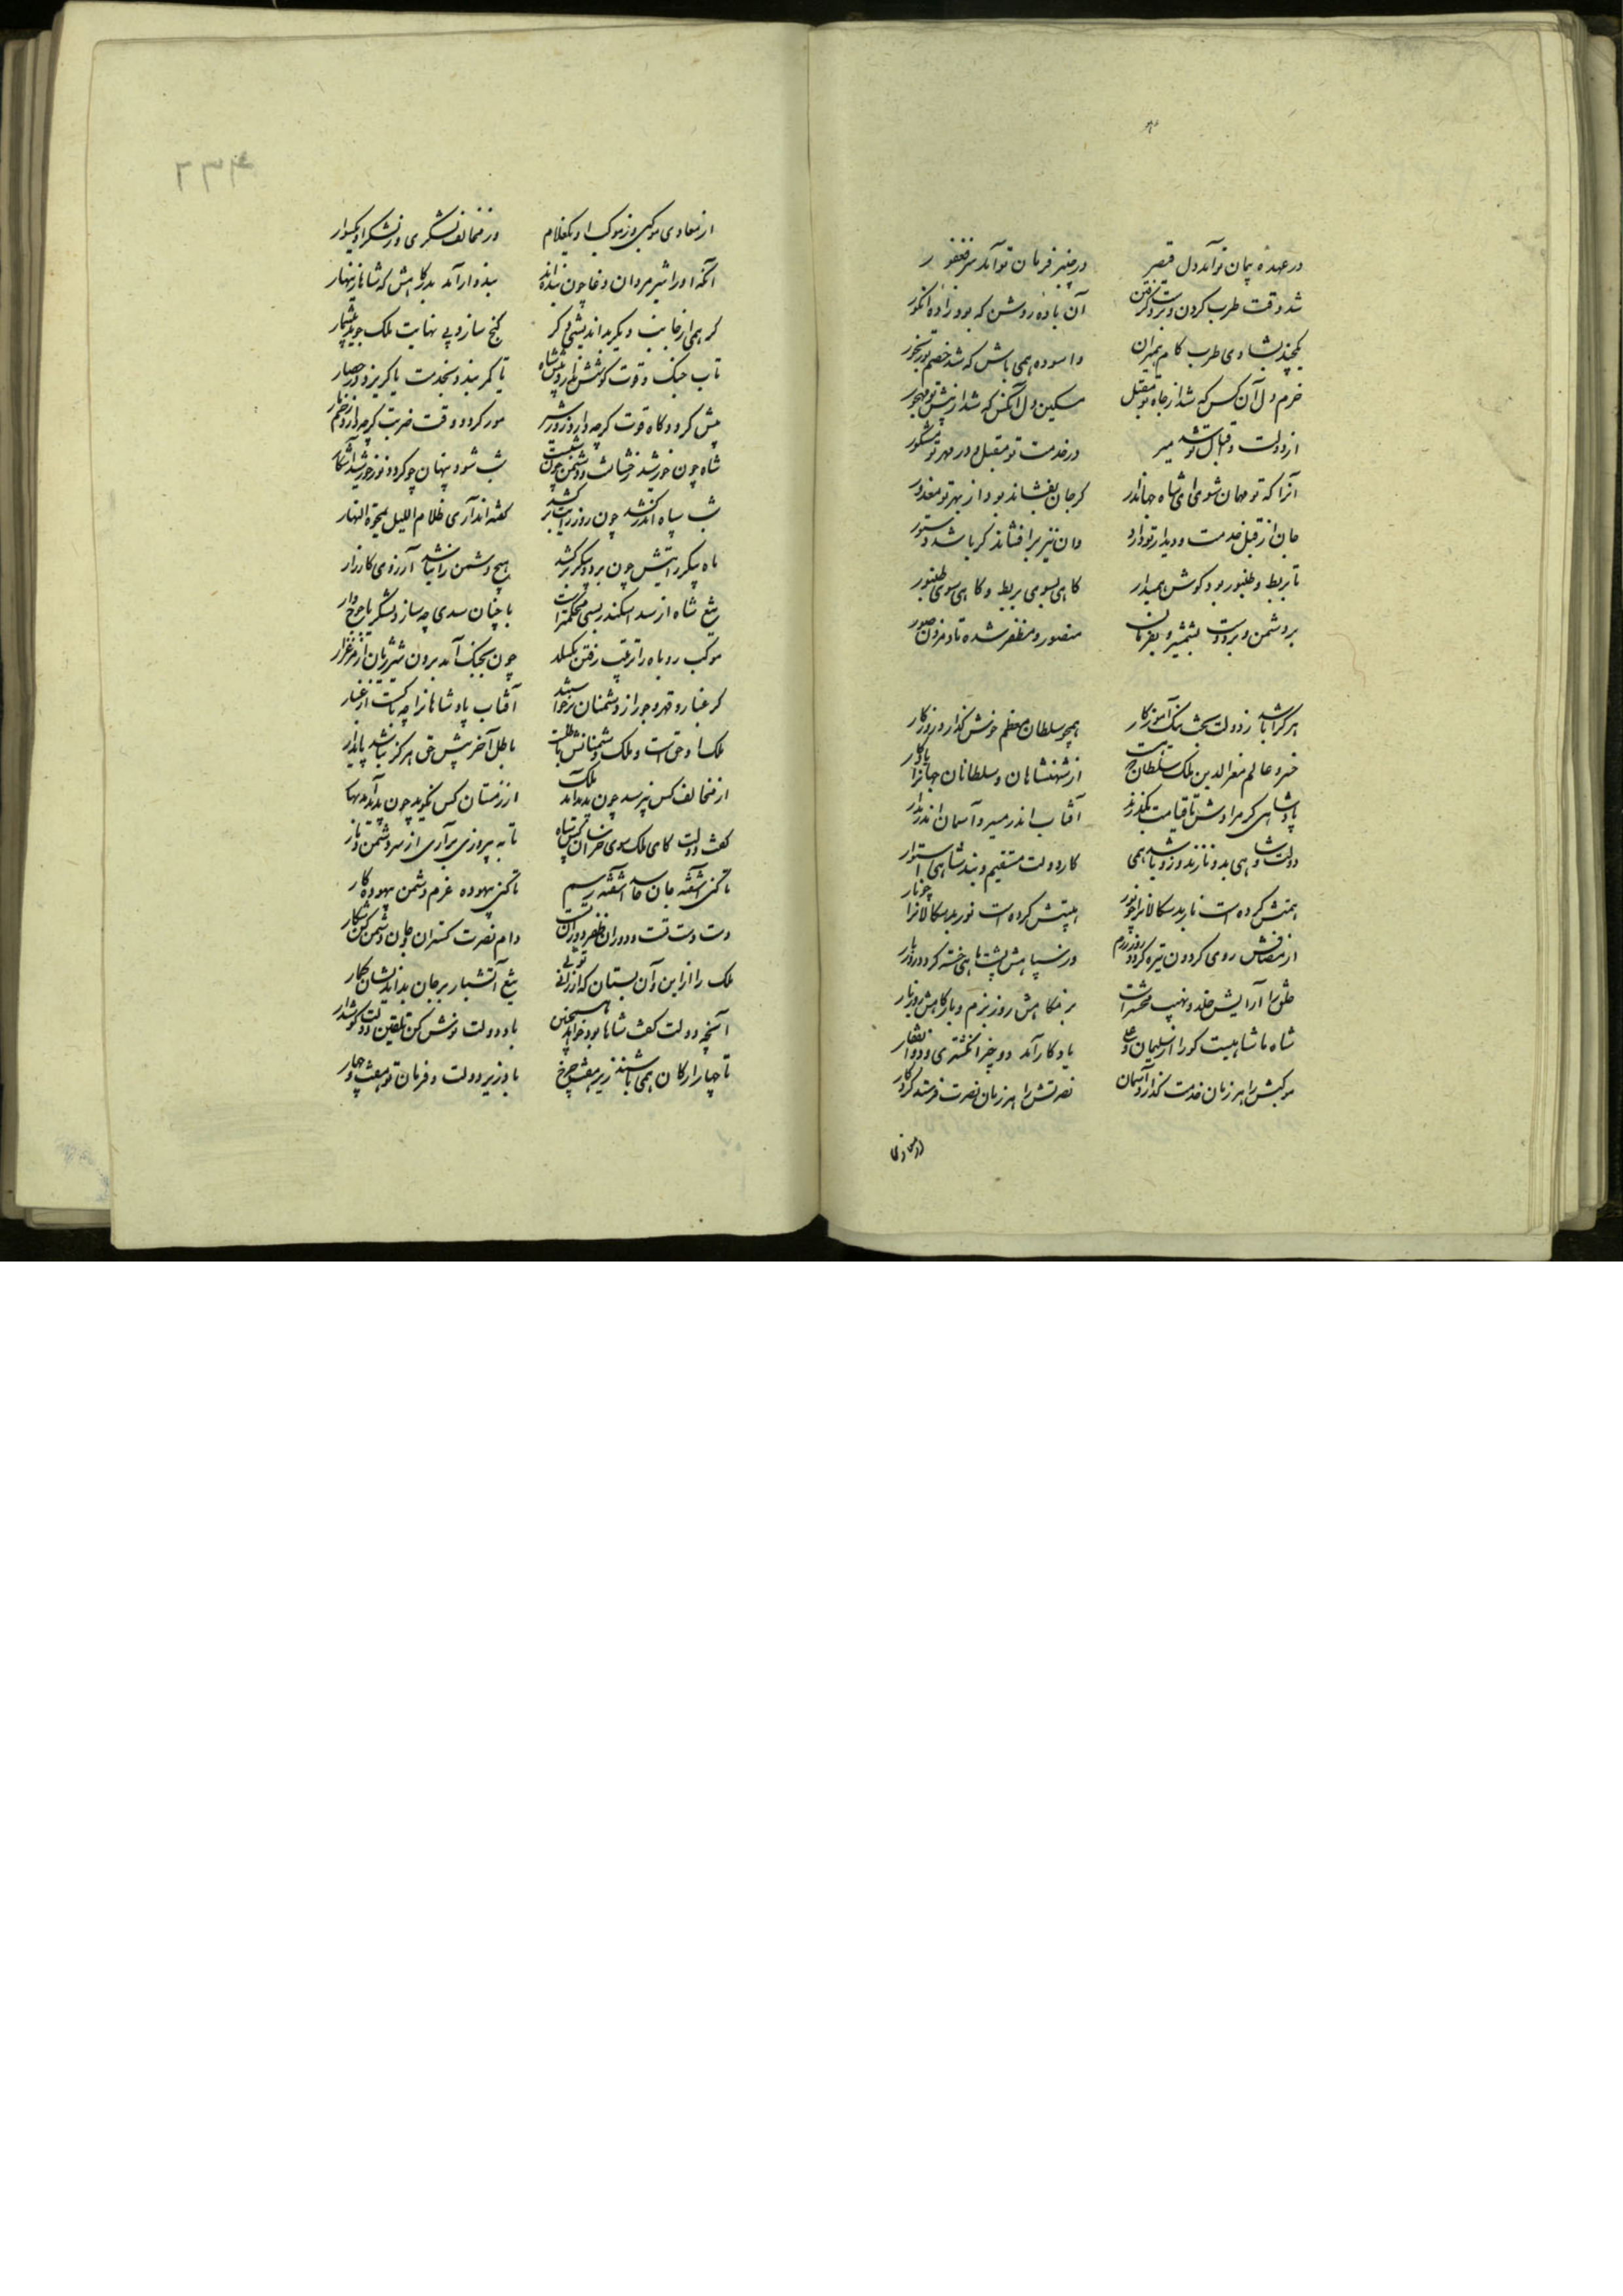 در عهده پیمان تو آمد دل قیصر در چنبر فرمان تو آمد سر فغفور
شد وقت طرب کردن و می گرفتن آن باده روشن که بود زاده انکور
یکچند بشادی طرب کام همیران و آسوده همی باش که شد خصم تو رنجور
خرم دل آن کس که شد از جاه تو مقبل مسکین دل آنکس که شد از پیش تو مهجور
از دولت و اقبال تو شد میر در خدمت تو مقبل و در مهر تو مشکور
آنرا که تو مهمان شوی ای شاه جهاندار کر جان بفشاند بود از بهر تو معذور
جان از قبل خدمت و دیدار تو دارد و آن نیز برافشاند کر باشد دستور
تا بربط و طنبور بود کوش همیدار کاهی بسوی بربط و کاهی سوی طنبور
بر دشمن و بر دوست بشمشیر و بفرمان منصور و مظفر شده تا دمزدن صور
هر کرا باشد ز دولت بخت نیک آموزکار همچو سلطان معظم خوش کذارد روزکار
خسرو عالم معزالدین ملک سلطان که هست از شهنشاهان و سلطانان جهانرا یادکار
پادشاهی کز مرادش تا قیامت نکذرد آفتاب اندر مسیر و آسمان اندر مدار
دولت و شاهی بدو نازند و زو باشد همی کار دولت مستقیم و بند شاهی استوار
همتش کرده است نار بدسکالانرا چو نور هیبتش کرده است نور بدسکالانرا چو نار
از مصافش روی کردون تیره کردد روز رزم وز سپاهش پشت ماهی خسته کردد روز بار
خلق را آرایش خلد و نهیب محشر است بزمکاهش روز بزم و بارکاهش روز بار
شاه ما شاهیست کورا از سلیمان و علی یادکار آمد دو چیز انکشتری و ذوالفقار
موکبش را هر زمان خدمت کذارد آسمان نصرتش را هر زمان نصرت فرستد کردکار
از معادی
از معادی موکبی وز موکب او یکغلام وز مخالف لشکری وز لشکر او یکسوار
آنکه او را شیر مردان وغا چون بنده‌اند بنده‌وار آمد بدرکاهش که شاها زینهار
کر همی از جانب دیکر بداندیشی دکر کنج سازد بی نهایت ملک جوید بیشمار
تاب جنک و قوت کوشش ندارد پیش شاه یا کمر بندد بخدمت یا کریزد در حصار
میش کردد کاه قوت کرچه دارد زور شیر مور کردد وقت ضربت کرچه دارد زخم مار
شاه چون خورشید رخشانست و دشمن چون شبست شب شود پنهان چو کردد نور خورشید آشکار
شب سپاه اندر کشد چون روز رایت برکشد کفته‌اند آری ظلام اللیل یمحوه النهار
ماه پیکر رایتش چون بر دو پیکر سر کشد هیچ دشمن را نباشد آرزوی کارزار
تیغ شاه از سد اسکندر بسی محکمتر است با چنان سدی چه سازد لشکر یاجوج‌وار
موکب روباه را ترتیب رفتن بکسلد چون بجنک آید برون شیر ژیان از مرغزار
کر غبار و قهر و جور از دشمنان برخواست شد آفتاب پادشاهانرا چه باکست از غبار
ملک او حق است و ملک دشمنانش باطلست باطل آخر پیش حق هرکز نباشد پایدار
از مخالف کس نپرسد چون پدید آمد ملک از زمستان کس نکوید چون پدید آمد بهار
کفت دولت کای ملک سوی خراسان کش سپاه تا به پیروزی برآری از سر دشمن دمار
تا کنی آشفته جان حاسد آشفته رسم تا کنی بیهوده عزم دشمن بیهوده‌کار
دست دست تست و دوران ظفر دوران تست دام نصرت کستران و جان دشمن کن شکار
ملک را از این و آن بستان که ارزانی تویی تیغ آتشبار بر جان بداندیشان کمار
آنچه دولت کفت شاها بود خواهد همچنین باده دولت نوش کن تلقین دولت کوش دار
تا چهار ارکان همی باشند زیر هفت چرخ باد زیر دولت و فرمان تو هفت و چهار